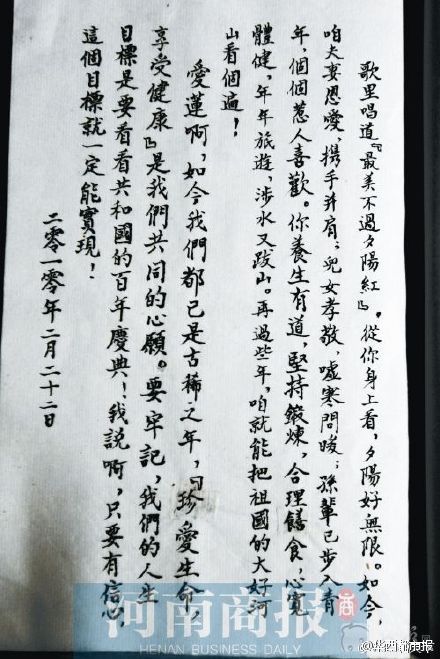 歌里唱道『最美不過夕陽紅』。從你身上看，夕陽好無限。如今，
咱夫妻恩愛，携手并肩；兒女孝敬，噓寒問暖；孫輩已步入青
年，個個惹人喜歡。你養生有道，堅持鍛煉，合理饍食，心寬
體健，年年旅遊，涉水又跋山。再過些年，咱就能把祖國的大好河
山看個遍！
愛蓮啊，如今我們都已是古稀之年，『珍愛生命，
享受健康』是我們共同的心願。要牢記，我們的人生
目標是要看看共和國的百年慶典！我說啊，只要有信心，
這個目標就一定能實現！
二零一零年二月二十二日
河南商报
HENAN BUSINESS DAILY
@华西都市报